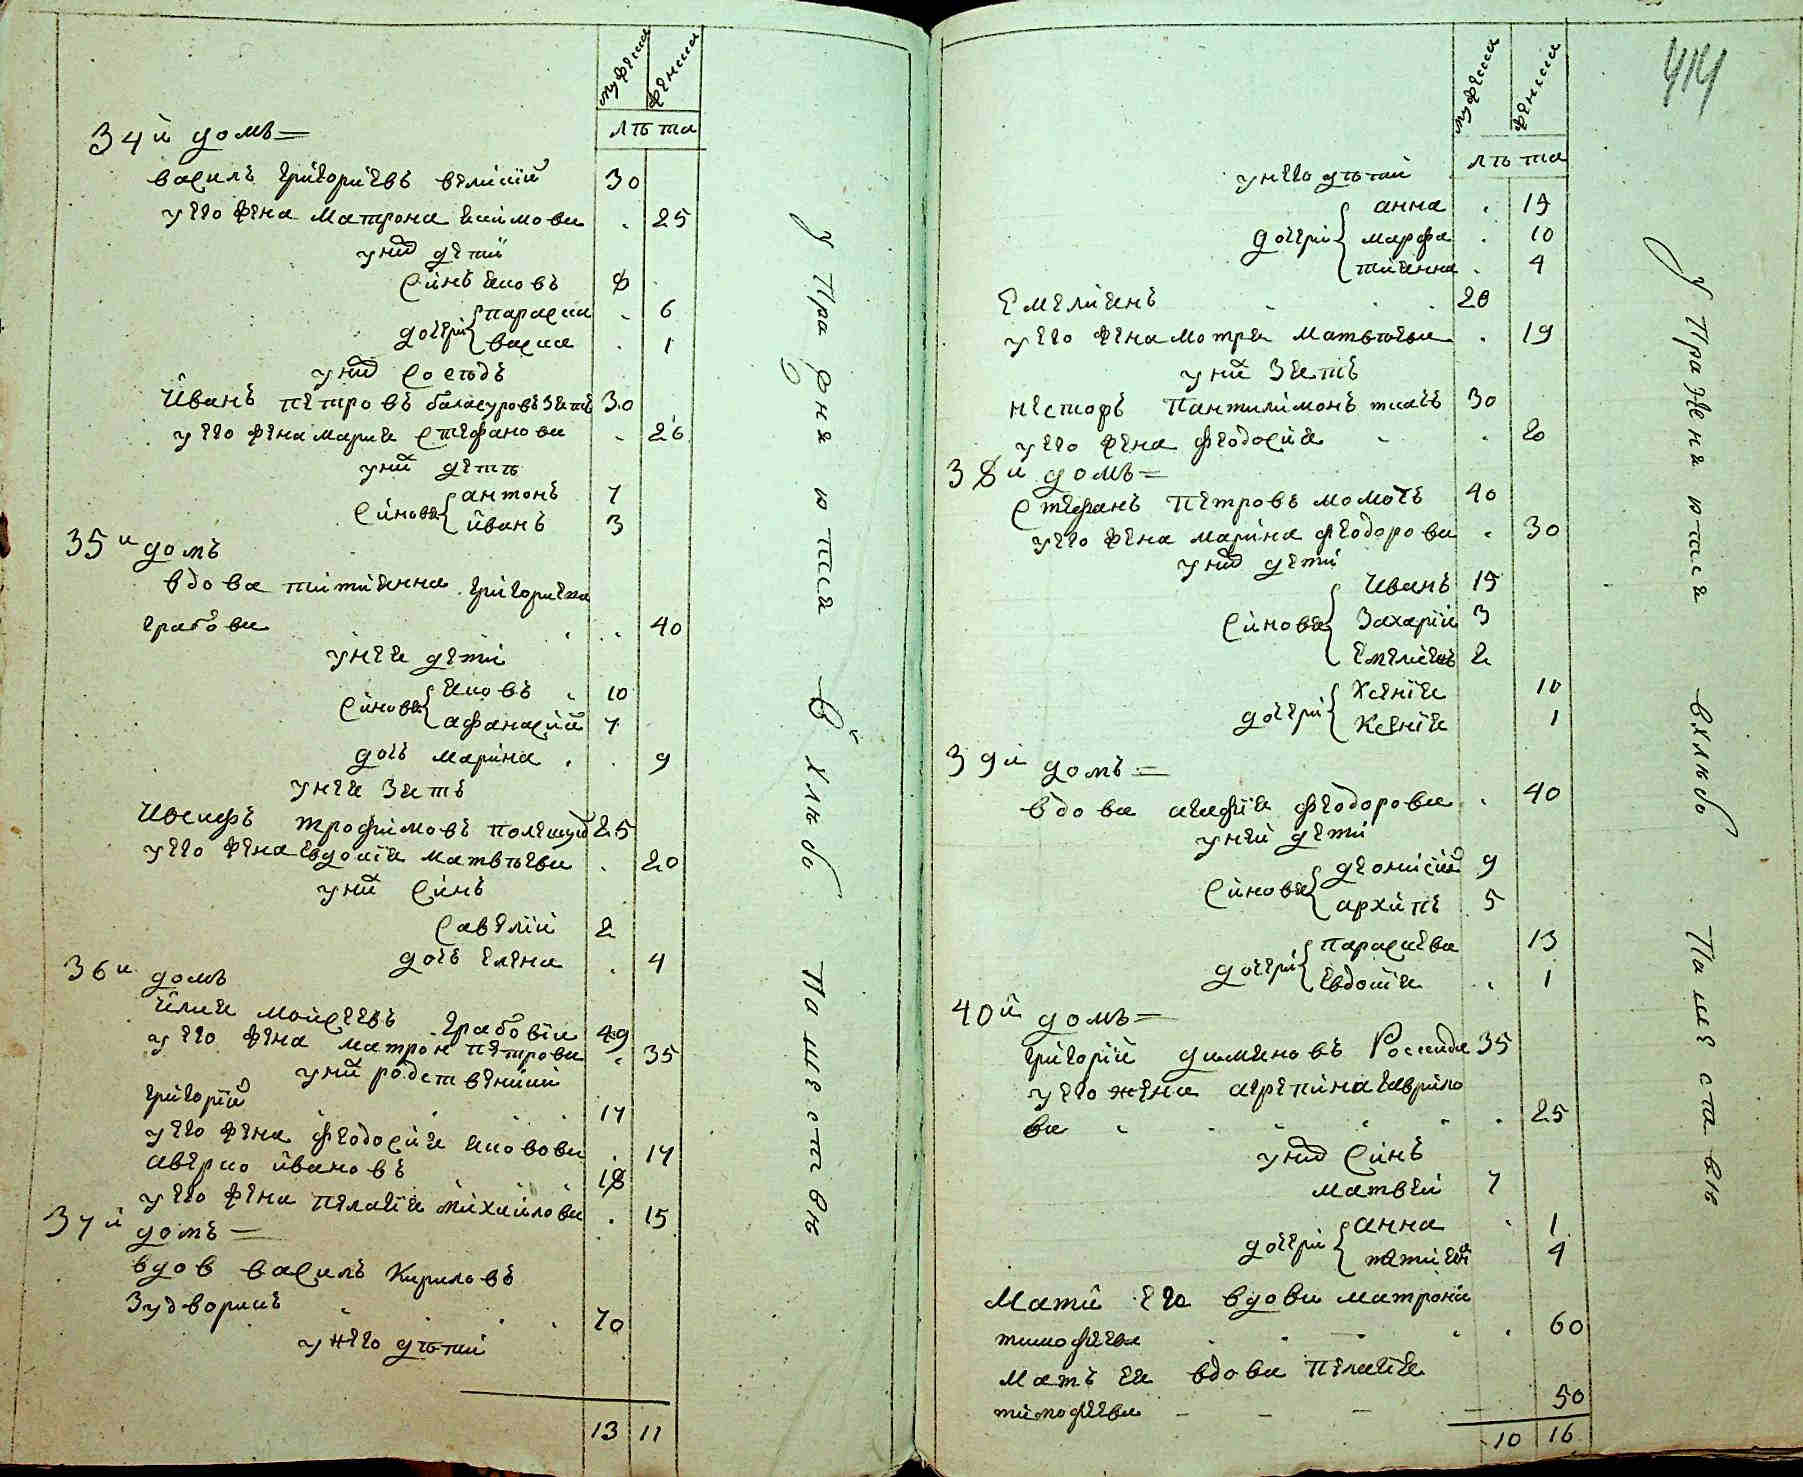 мужеска женска
лѣта
34й домъ
василь григориевъ великий 30
у его жена матрона екимова 25
у них дети
синъ яковъ 8
дочери параска 6
васка 1
у них соседъ
йванъ петровъ балацуровъ зять 30
у его жена мария стефанова 26
у них дети
синовя антонъ 7
йванъ 3
35и домъ
вдова титиянна григориева
грабова 40
у нея дети
синовя яковъ 10
афанасий 7
дочь марина 9
у нея зять
иосифъ трофимовъ полещук 25
у его жена евдокия матвѣева 20
у них синъ
савелий 2
дочь елена 4
36и домъ
илия мойсеевъ грабовии 49
у его жена матрон петрова 35
у них родственики
григорий 17
у его жена феодосия яковова 17
аверко йвановъ 18
у его жена пелагия михайлова 15
37й домъ
вдов василь кириловъ
Зудворникъ 70
у него дѣтий
13 11
у Пра дня ю тая
В хлѣбо
Поместавя
414
мужеска женска
лѣта
у него дѣтий
дочери анна 15
марфа 10
тиянна 4
Емелиянъ 20
у его жена мотря матвѣева 19
у них зять
несторъ Пантилимонъ ткачъ 30
у его жена феодосия 20
38й домъ
стефанъ Петровъ момотъ 40
у его жена марина феодорова 30
у них дети
синовя Иванъ 15
Захарий 3
Емелиянъ 2
дочери Ксения 10
Ксения 1
39й домъ
вдова агафия феодорова 40
у ней дети
синовя деонисий 9
архипъ 5
дочери параскева 13
Евдокия 1
40й домъ
григорий дамяновъ Росинда 35
у его жена агрепина гаврило
ва 25
у них синъ
матвей 7
дочери анна 1
татияна 4
Мати его вдова матрона
тимофеева 60
мать ея вдова пелагия
тимофеева 50
10 16
у Пра жени ютая
вхлѣбо
Паместавѣ